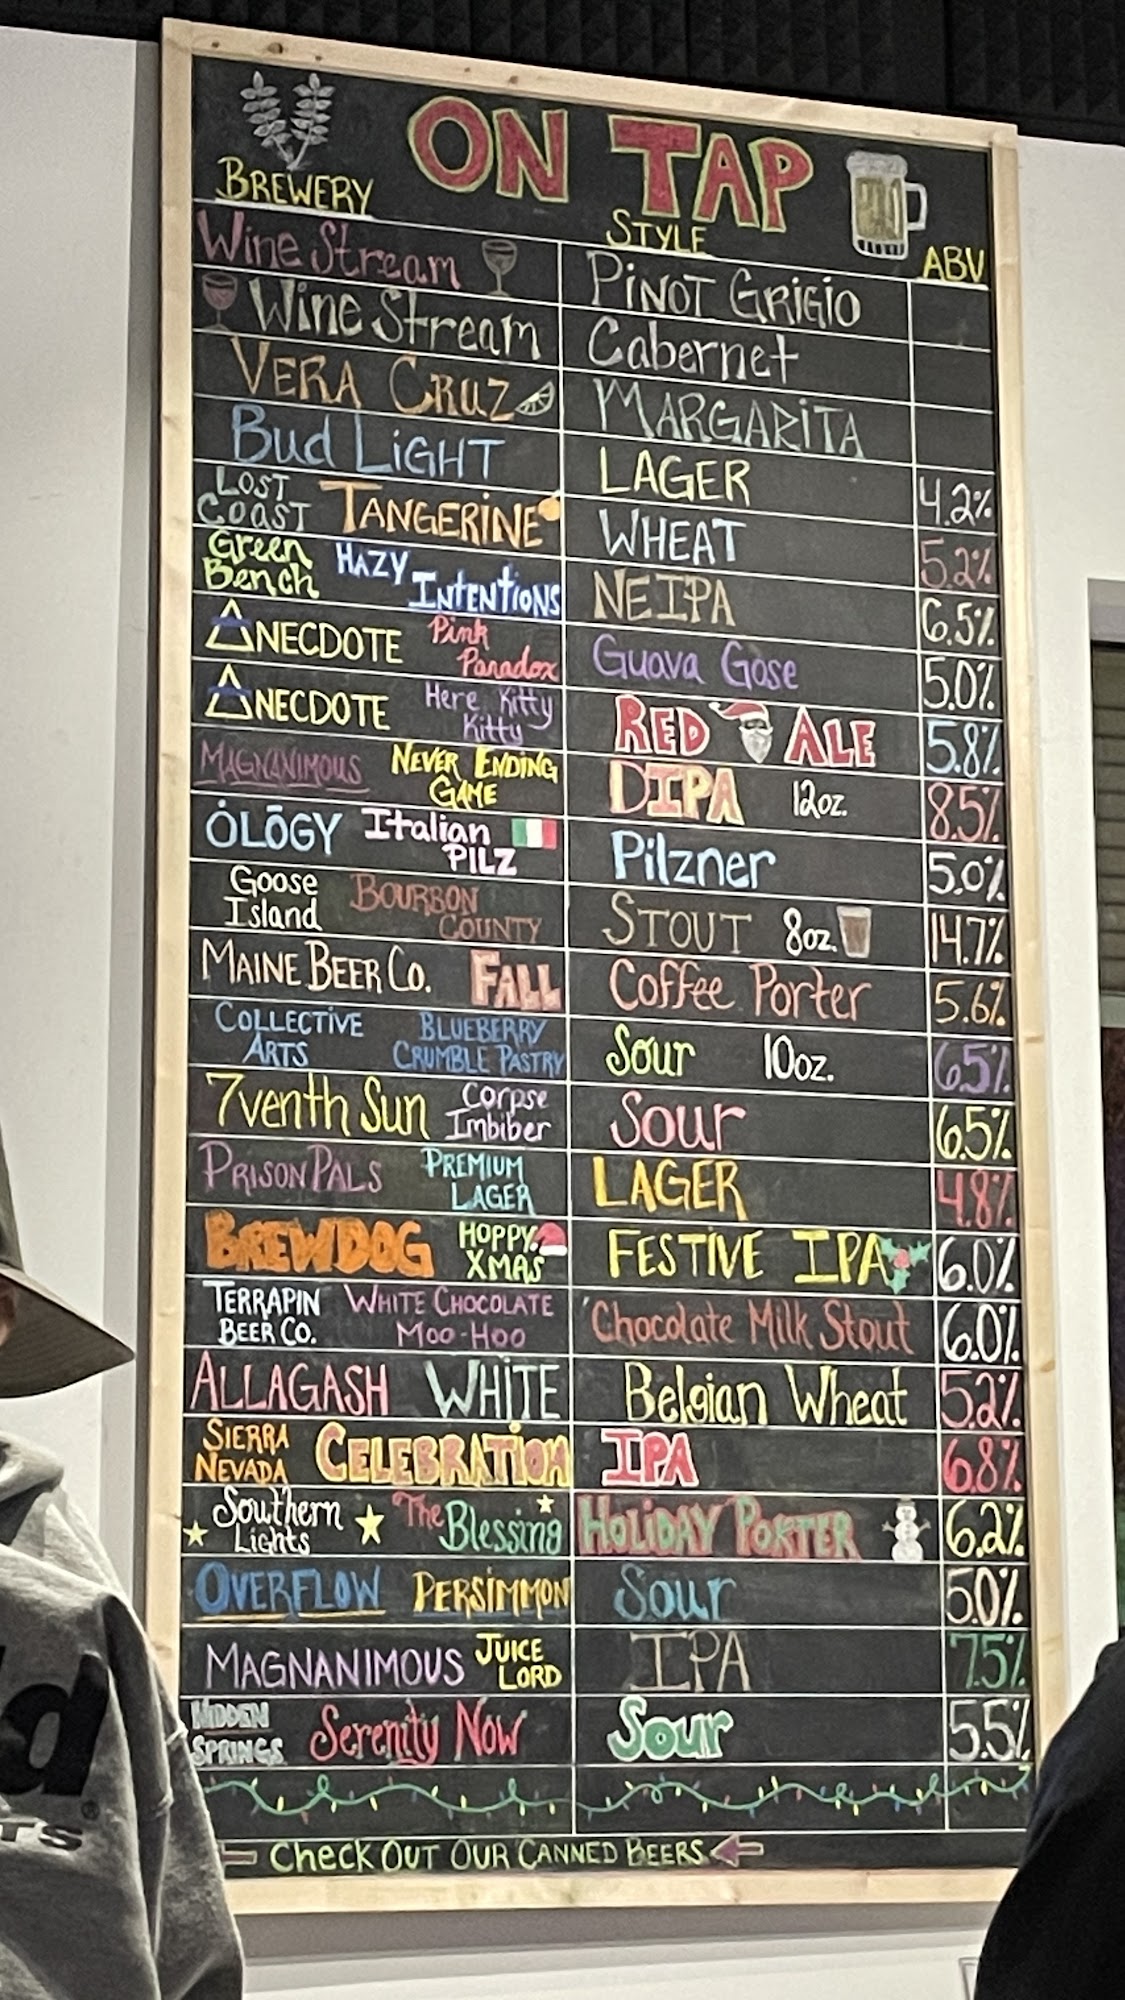 ON TAP
BREWERY STYLE ABV
Wine Stream PiNOT GRiGiO
Wine Stream Cabernet
VERA CRUZ MARGARiTA
Bud LiGHT LAGER 4.2%
LOST COAST TANGERiNE WHEAT 5.2%
Green Bench HAZY INTENTiONS NE IPA 6.5%
ANECDOTE Pink Paradox Guava Gose 5.0%
ANECDOTE Here Kitty Kitty RED ALE 5.8%
MAGNANIMOUS NEVER ENDING GAME DIPA 12oz. 8.5%
ÓLŌGY Italian PILZ Pilzner 5.0%
Goose Island BOURBON COUNTY STOUT 8oz. 14.7%
MAINE BEER CO. FALL Coffee Porter 5.6%
COLLECTiVE ARTS BLUEBERRY CRUMBLE PASTRY Sour 10oz. 6.5%
7venth Sun Corpse Imbiber Sour 6.5%
PRISON PALS PREMIUM LAGER LAGER 4.8%
BREWDOG HOPPY XMAS FESTIVE IPA 6.0%
TERRAPIN BEER CO. WHITE CHOCOLATE MOO-HOO Chocolate Milk Stout 6.0%
ALLAGASH WHiTE Belgian Wheat 5.2%
SIERRA NEVADA CELEBRATiON IPA 6.8%
Southern Lights The Blessing HOLiDAY PORTER 6.2%
OVERFLOW PERSiMMON Sour 5.0%
MAGNANIMOUS JUICE LORD IPA 7.5%
HIDDEN SPRINGS Serenity Now Sour 5.5%
CHECK OUT OUR CANNED BEERS